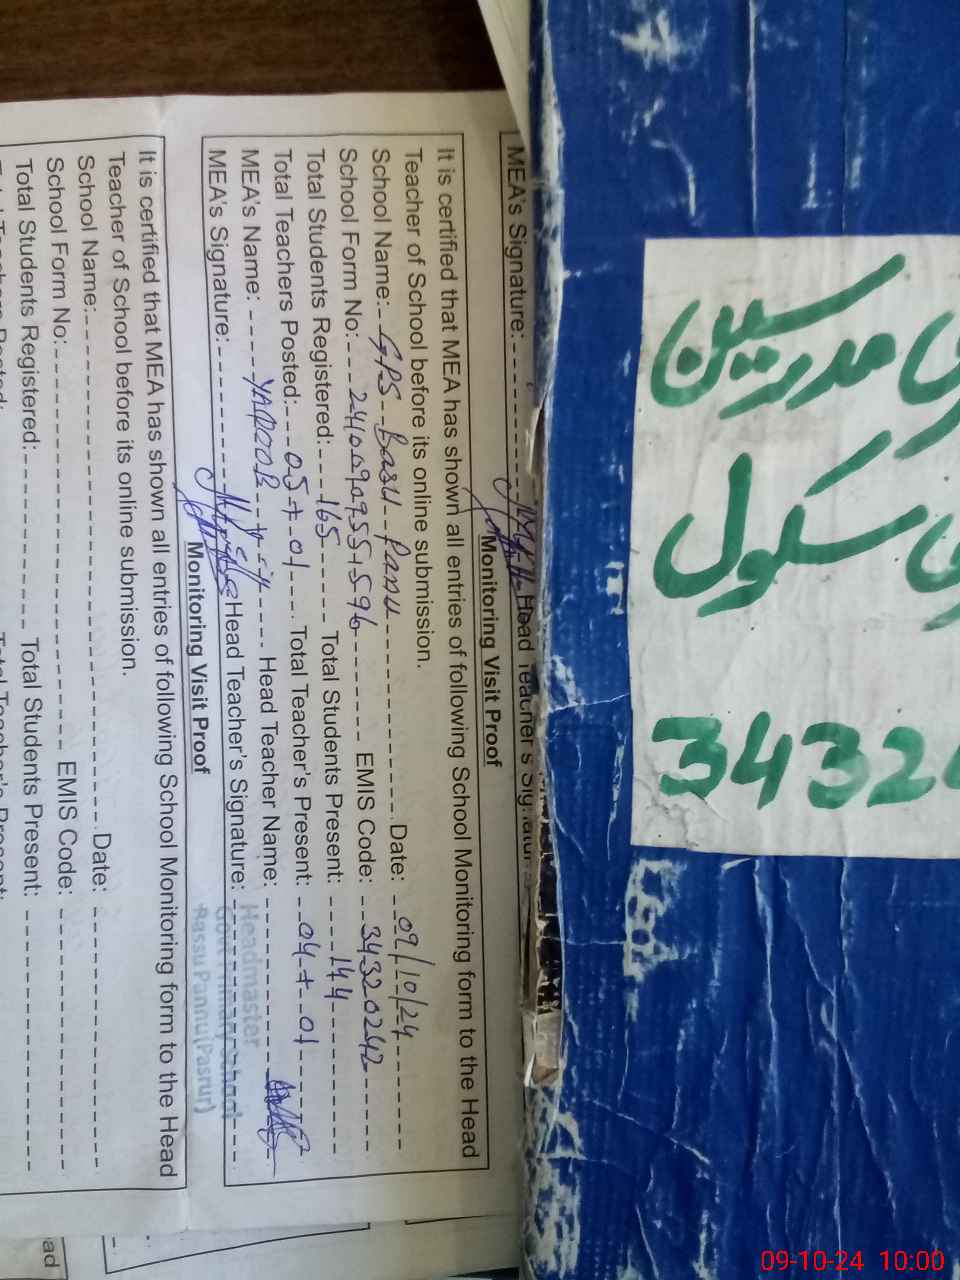 MEA's Signature: Head Teacher's Signature
Monitoring Visit Proof
It is certified that MEA has shown all entries of following School Monitoring form to the Head
Teacher of School before its online submission.
School Name: GPS Basu Panu Date: 09/10/24
School Form No: EMIS Code: 34320242
Total Students Registered: 165 Total Students Present: 144
Total Teachers Posted: 05+01 Total Teacher's Present: 04+01
MEA's Name: Head Teacher Name:
MEA's Signature: Head Teacher's Signature:
Headmaster
Govt Primary School
Bassu Pannu (Pasrur)
Monitoring Visit Proof
It is certified that MEA has shown all entries of following School Monitoring form to the Head
Teacher of School before its online submission.
School Name: Date:
School Form No: EMIS Code:
Total Students Registered: Total Students Present:
ی مدرسین
ی سکول
3432
09-10-24 10:00